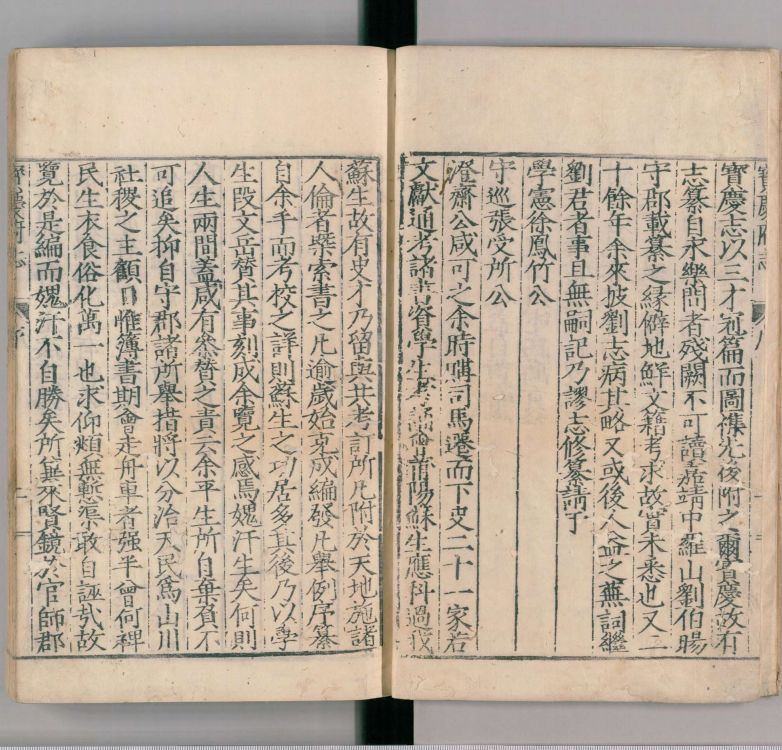 寶慶志以三才冠篇而圖集先後附之爾寶慶故有
志纂自永樂間者殘闕不可讀嘉靖中羅山劉伯暘
守郡載纂之緣僻地鮮文籍考求故實未悉也又二
十餘年余來披劉志病其略又或後人益之蕪詞繼
劉君者事且無嗣記乃謬志修纂請于
學憲徐鳳竹公
守巡張受所公
澄齋公咸可之余時購司馬遷而下史二十一家若
文獻通考諸書資學生莆陽蘇生應科過我
蘇生故有史才乃留與共考訂所凡附於天地施諸
人倫者槩索書之凡逾歲始克成編發凡舉例序纂
自余手而考校之詳則蘇生之功居多其後乃以學
生段文岳贊其事刻成余覽之感焉媿汗生矣何則
人生兩間蓋咸有叅贊之責云余平生所自棄負不
可追矣抑自守郡諸所舉措將以分治天民為山川
社稷之主顧日惟簿書期會走舟車者强半曾何裨
民生衣食俗化萬一也求仰頰無慙渠敢自誣哉故
覽於是編而媿汗不自勝矣所兾來賢鏡於官師郡
寶慶府志
序